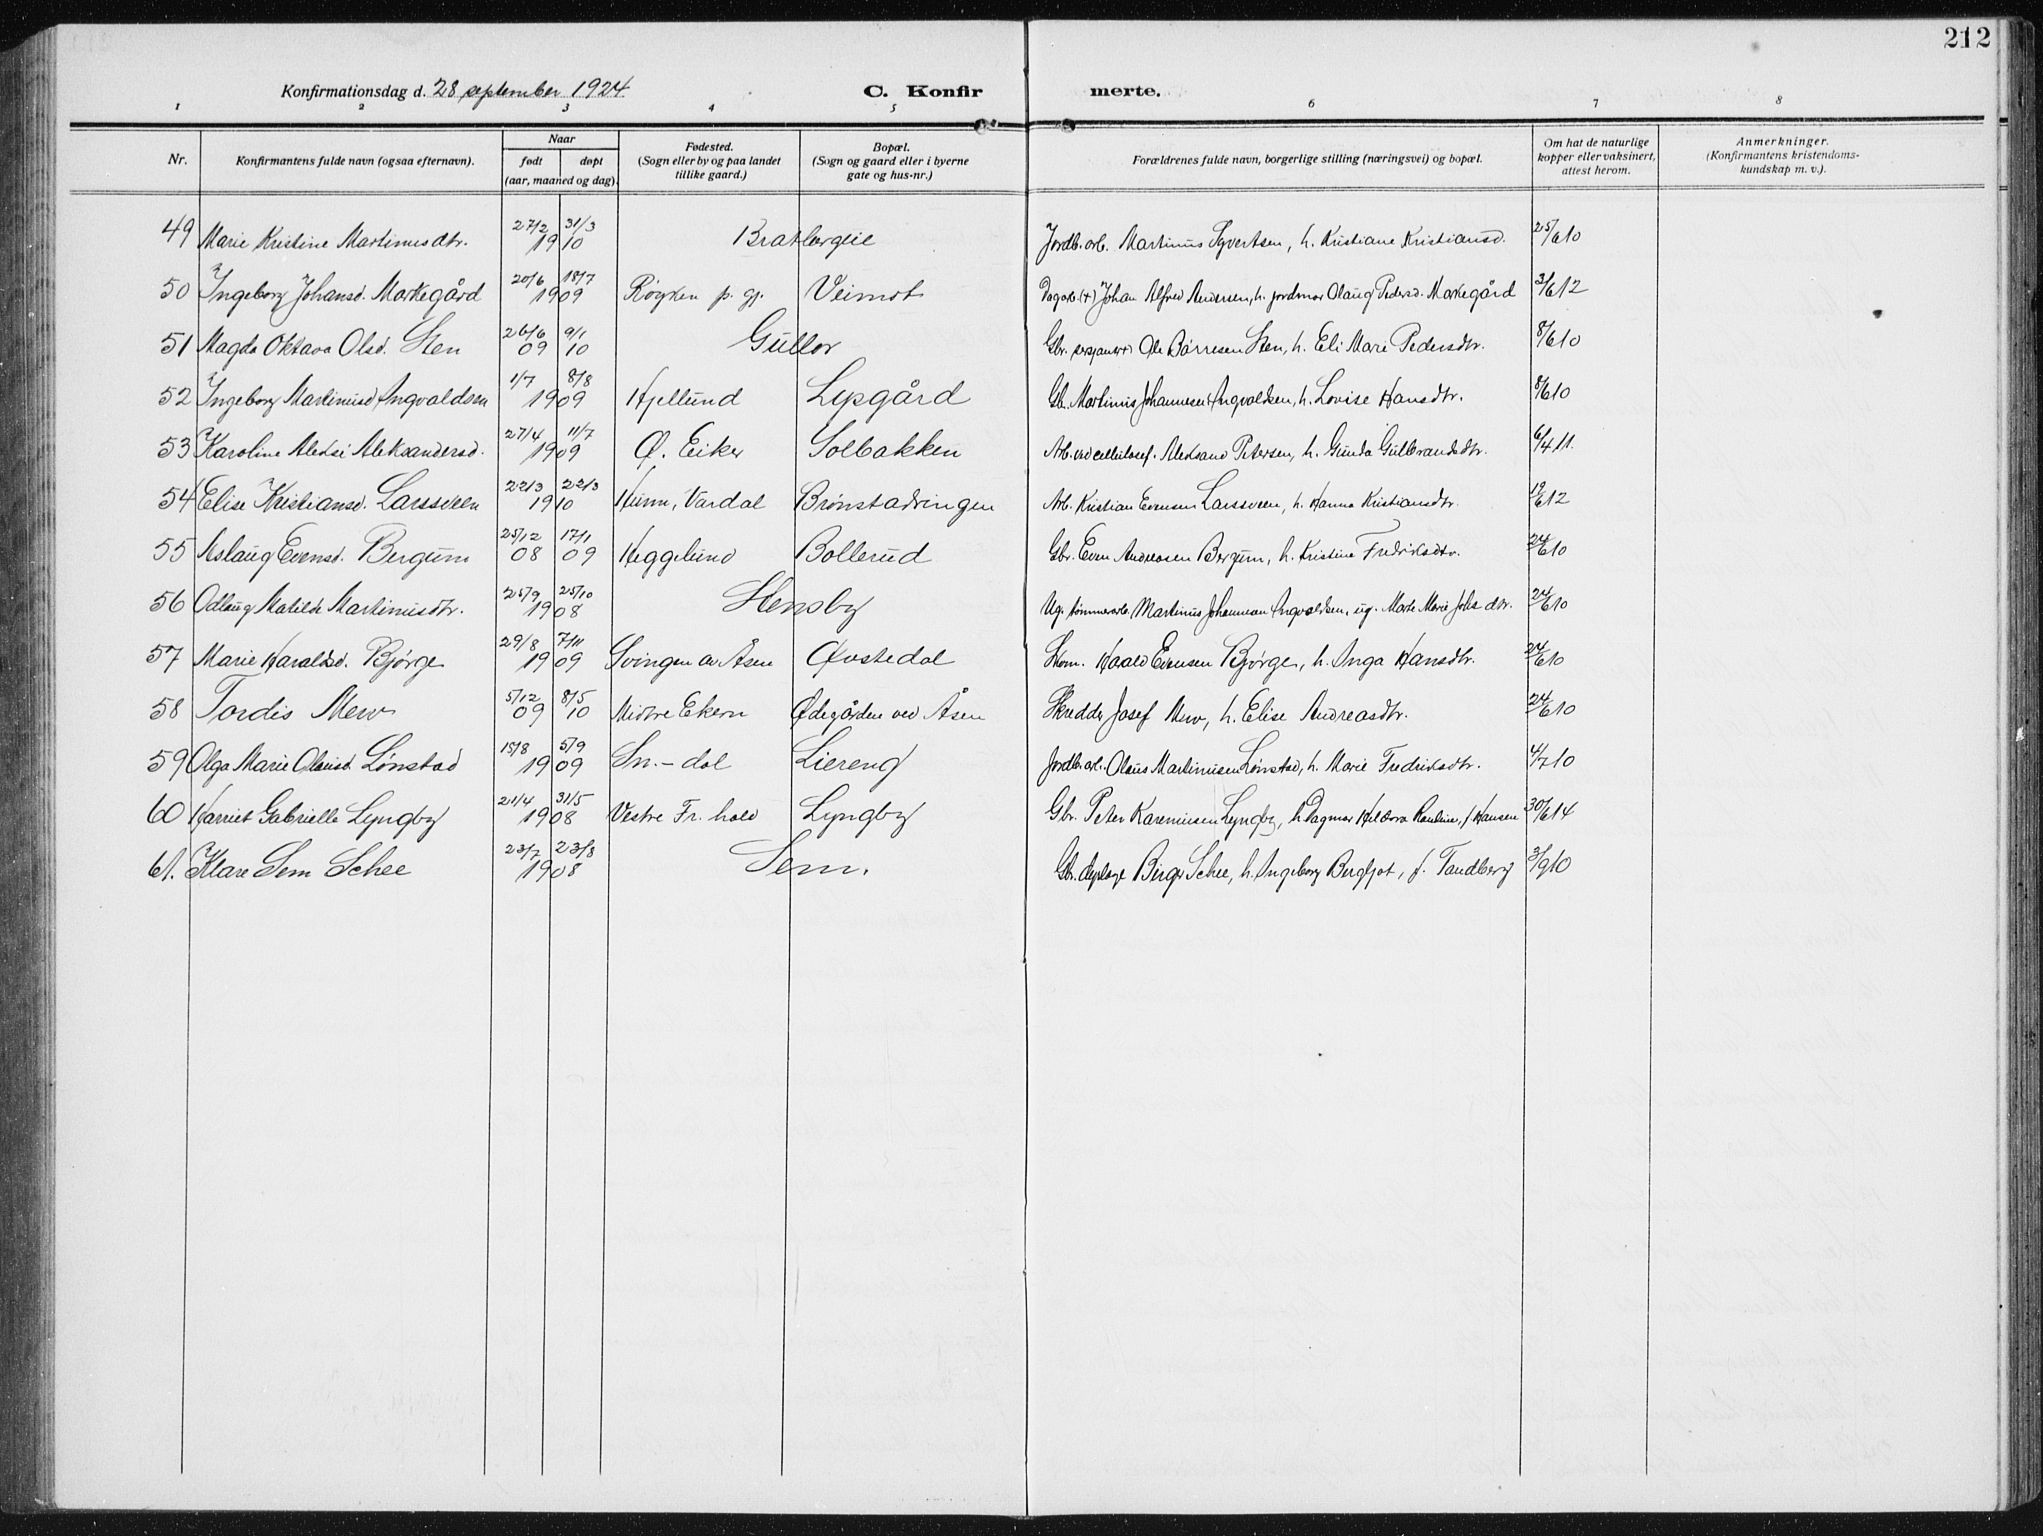 212
Konfirmationsdag d. 28 september 1924 C. Konfir merte.
1 2 3 4 5 6 7 8
Nr. Konfirmantens fulde navn (ogsaa efternavn). Naar født døpt (aar, maaned og dag). Fødested. (Sogn eller by og paa landet tillike gaard.) Bopæl. (Sogn og gaard eller i byerne gate og hus-nr.) Forældrenes fulde navn, borgerlige stilling (næringsvei) og bopæl. Om hat de naturlige kopper eller vaksinert, attest herom. Anmerkninger. (Konfirmantens kristendoms-kundskap m. v.).
49 Marie Kristine Martinusdtr. 27/2 31/3 1910 Bratbergeie Jordb. arb. Martinus Syvertsen, h. Kristiane Kristiansd. 25/6 10
50 Ingeborg Johansd. Markegård 20/6 18/7 1909 Røyken p. gj. Veimot Dagarb. (+) Johan Alfred Andersen, h. jordmor Olaug Pedersd. Markegård 3/6 12
51 Magda Oktava Olsd. Sten 26/6 09 9/1 10 Gullor Gbr. Ole Børresen Sten, h. Eli Marie Pedersdtr. 8/6 10
52 Ingeborg Martinusd Ingvaldsen 1/7 8/8 1909 Hjellund Lysgård Gb. Martinius Johannesen Ingvaldsen, h. Lovise Hansdtr. 8/6 10
53 Karoline Aleksandersd. 27/4 11/7 1909 Ø. Eiker Solbakken Arb. ved cellulosef. Aleksand Petersen, h. Gunda Gulbrandsdtr. 6/4 11.
54 Elise Kristiansd. Larssveen 22/3 22/3 1910 Hunn, Vardal Brønstadringen Arb. Kristian Evensen Larssveen, h. Hanna Kristiansdtr. 19/6 12
55 Aslaug Evensd. Bergum 25/12 08 17/1 09 Heggelund Bollerud Gbr. Even Andreasen Bergum, h. Kristine Fredriksdtr. 24/6 10
56 Odlaug Matilde Martinusdtr. 25/9 25/10 1908 Stensby Ug. tømmerarb. Martinus Johannesen Ingvaldsen, ug. Marte Marie Johs dtr. 24/6 10
57 Marie Haraldsd. Bjørge 29/8 7/11 1909 Svingen av Åsen Qvstedal Stm. Harald Evensen Bjørge, h. Inga Hansdtr. 24/6 10
58 Tordis Mew 5/12 09 8/5 10 Midtre Ekern Ødegården ved Åsen Skredder Josef Mew, h. Elise Andreasdtr. 24/6 10
59 Olga Marie Olausd. Lønstad 15/8 5/9 1909 Sn.-dal Liereng Jordb. arb. Olaus Martinusen Lønstad, h. Marie Fredriksdtr. 4/7 10
60 Harriet Gabrielle Lyngby 21/4 31/5 1908 Vestre Fr. hald Lyngby Gbr. Peter Karenusen Lyngby, h. Dagmar Pauline, f. Hansen 30/6 14
61. Klare Sem Schee 23/7 23/8 1908 Sem. Gbr. dyrlæge Birger Schee, h. Ingeborg Bergljot, f. Tandberg 3/9 10